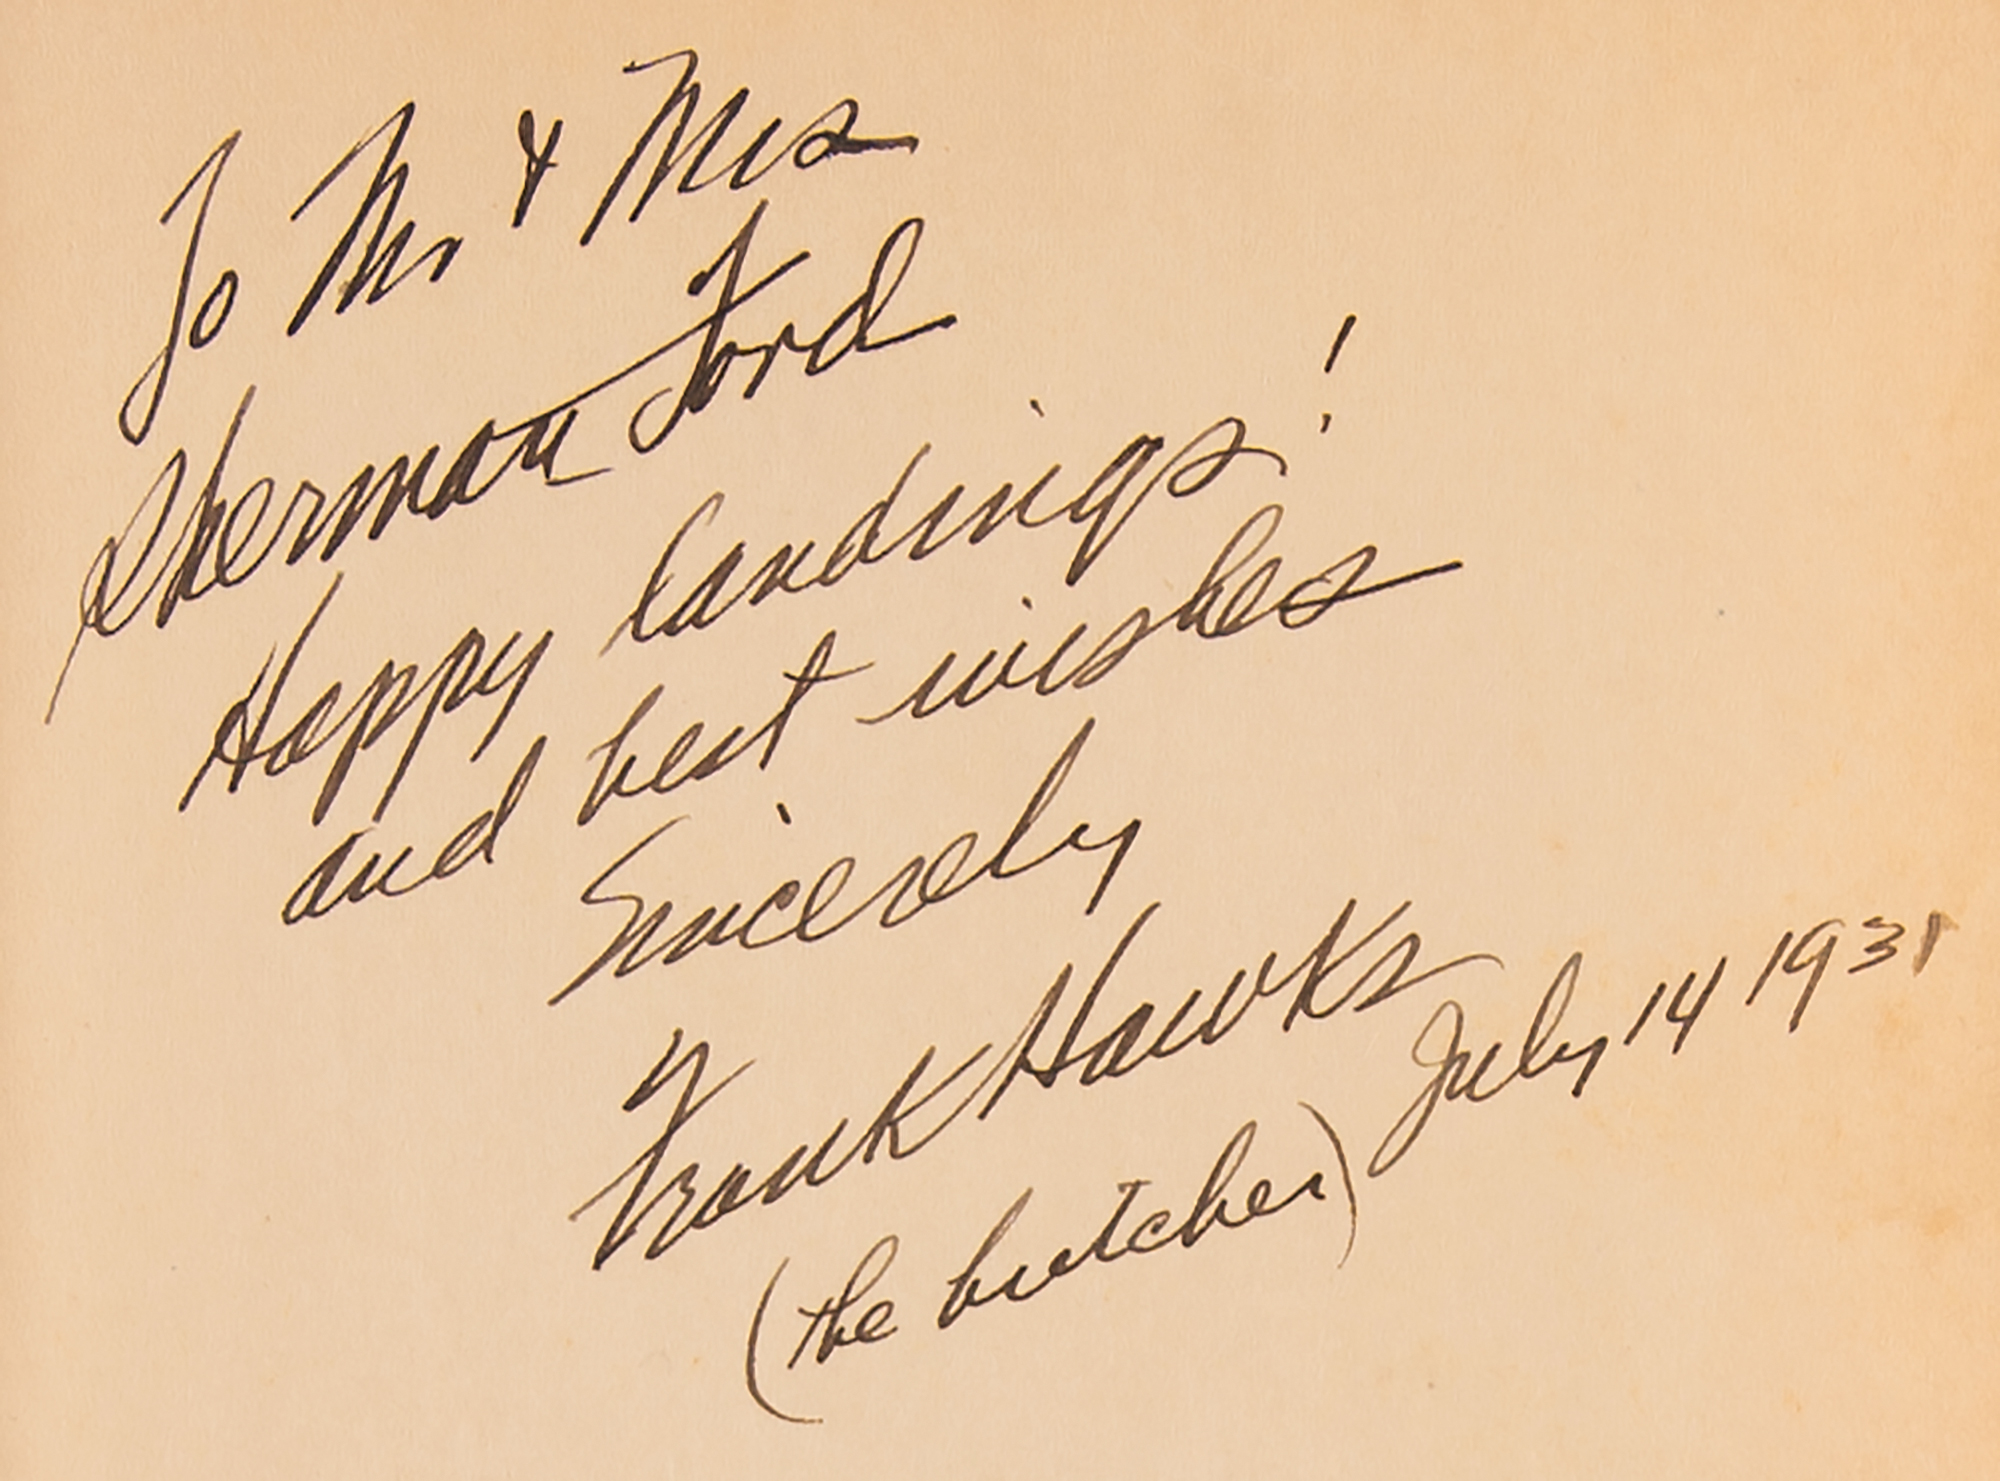 To Mr & Mrs
Sherman Ford
Happy landings!
and best wishes
Sincerely
Frank Hawks
(the butcher) July 14 1931